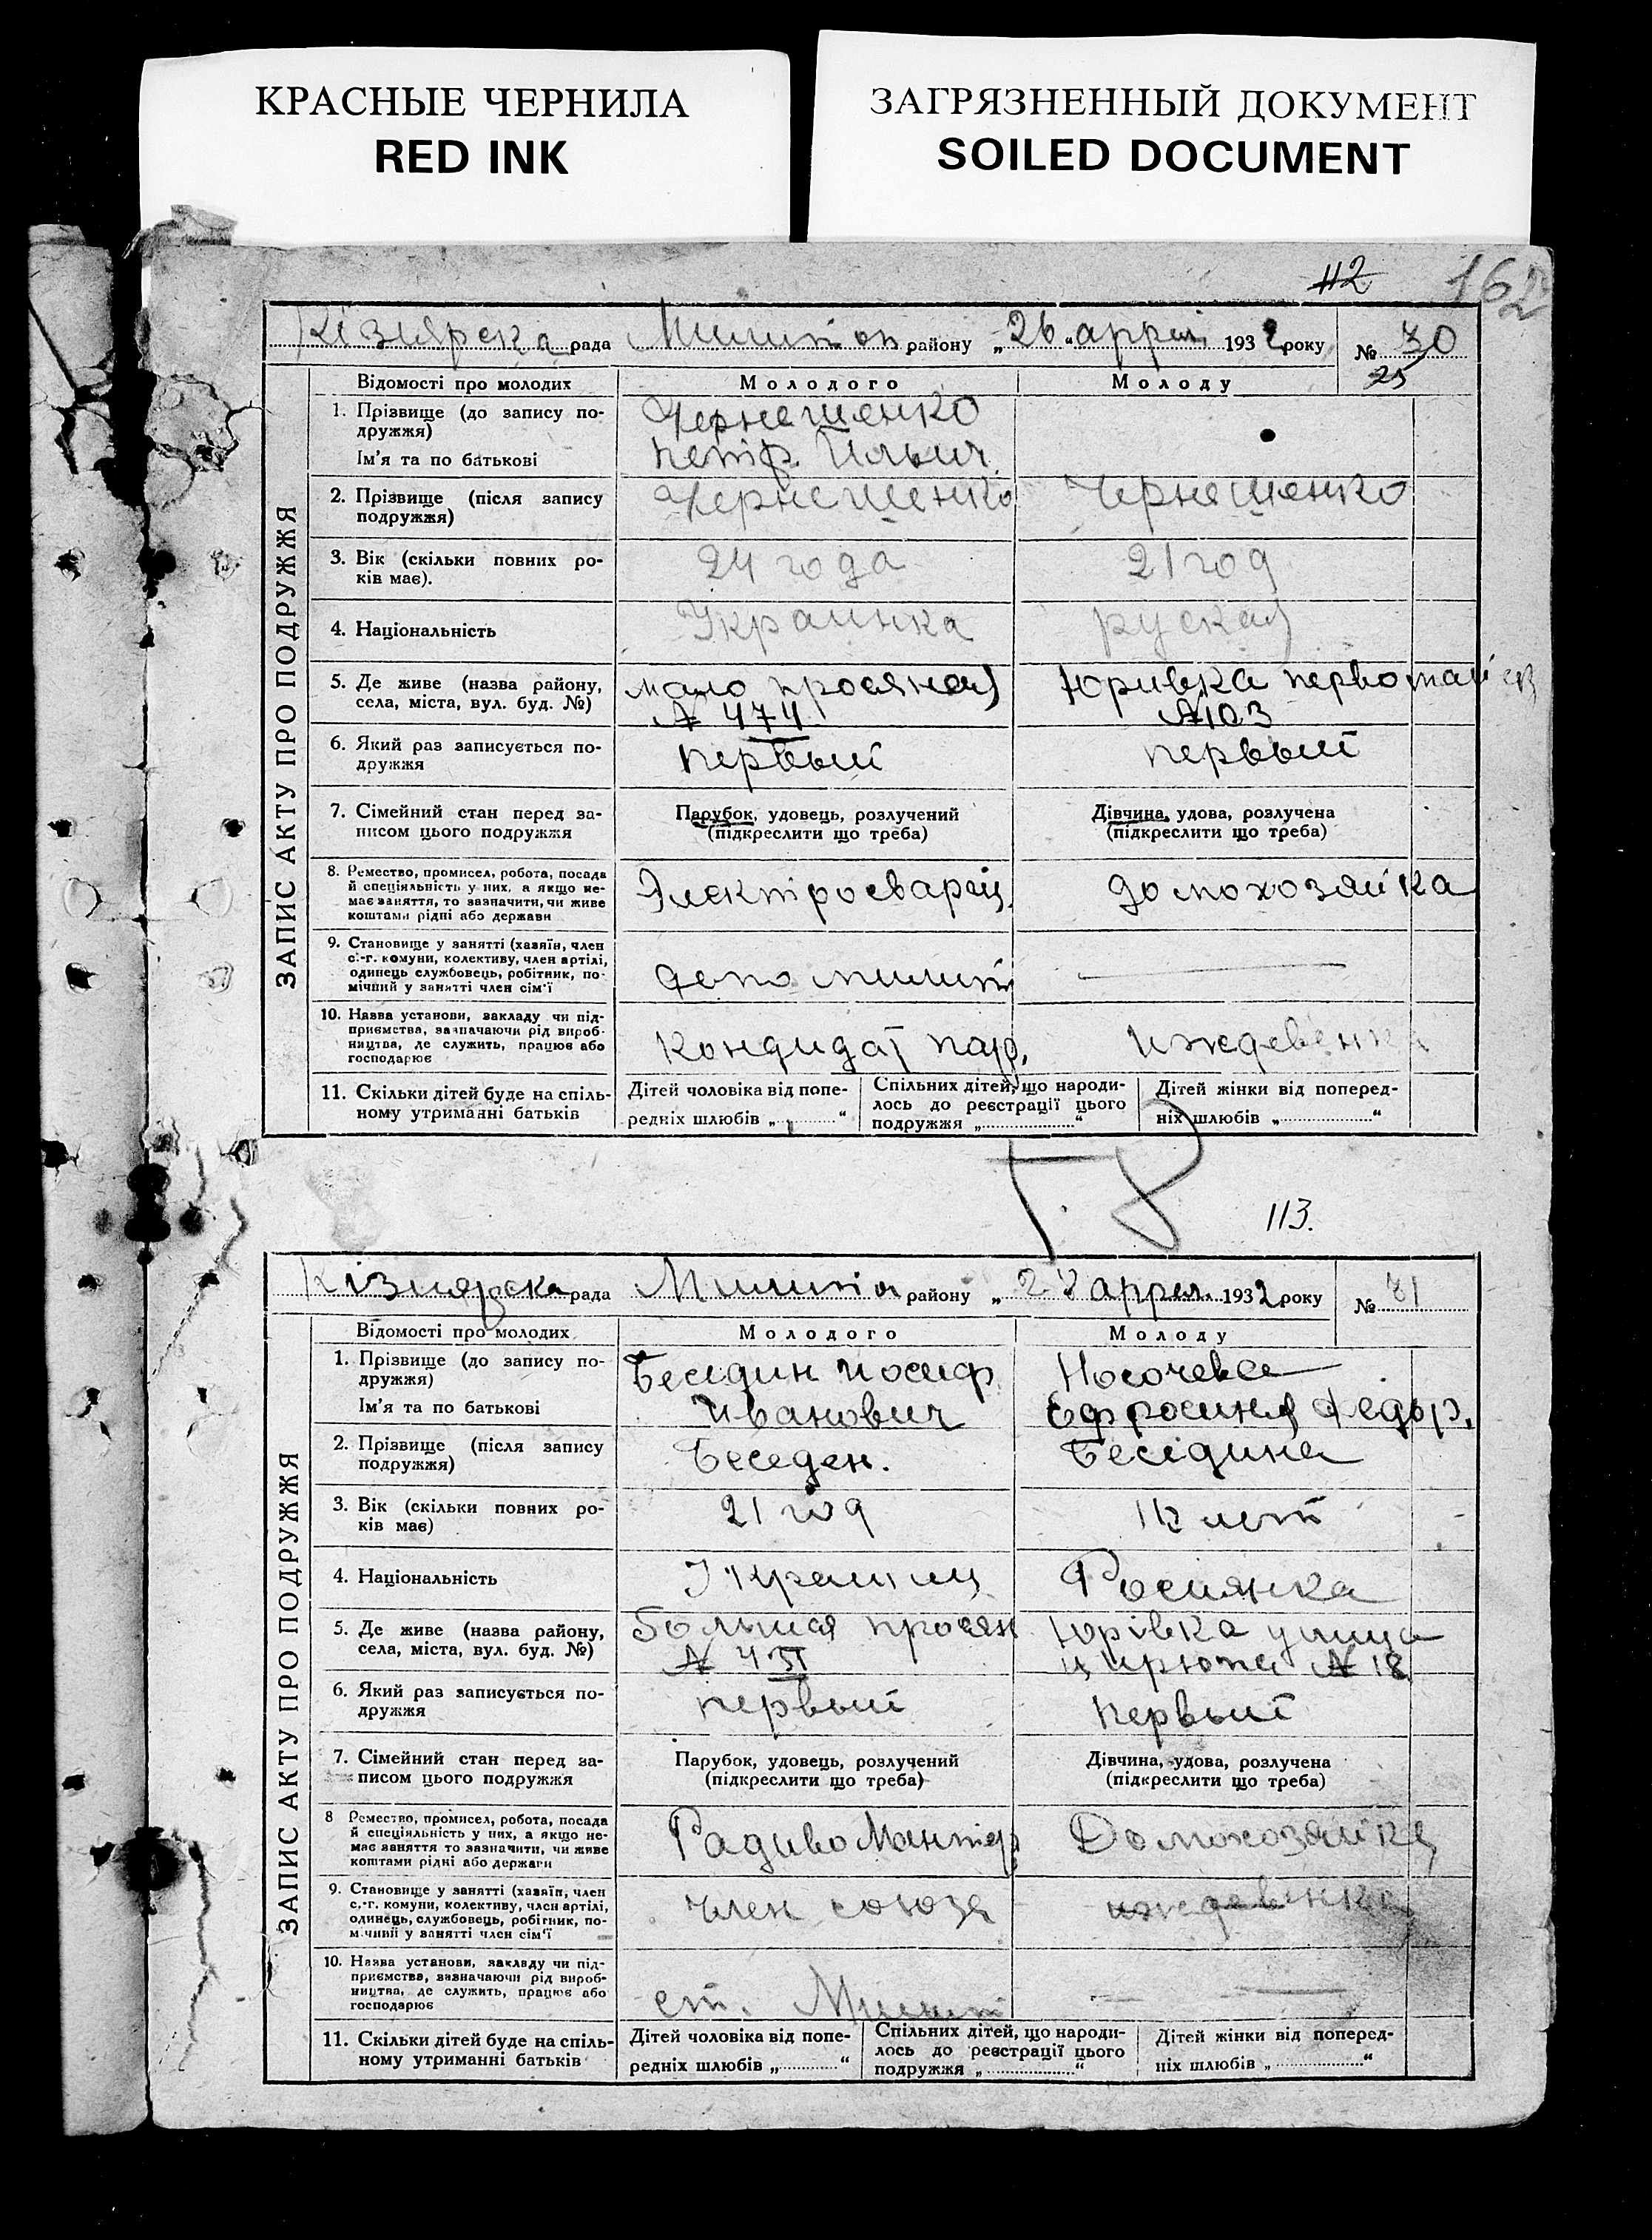 КРАСНЫЕ ЧЕРНИЛА
RED INK
ЗАГРЯЗНЕННЫЙ ДОКУМЕНТ
SOILED DOCUMENT
112
162
Кізиярска рада Мелитоп району „26“ апреля 1932 року № 70
25
ЗАПИС АКТУ ПРО ПОДРУЖЖЯ
Відомості про молодих Молодого Молоду
1. Прізвище (до запису по-
дружжя)
Ім’я та по батькові
Чернешенко
Петр. Ильич.
2. Прізвище (після запису
подружжя)
Чернешенко Чернешенко
3. Вік (скільки повних ро-
ків має).
24 года 21 год
4. Національність Украинка руская
5. Де живе (назва району,
села, міста, вул. буд. №)
мало просяная
№ 474
Юривка первомайск
№103
6. Який раз записується по-
дружжя
первый первый
7. Сімейний стан перед за-
писом цього подружжя
Парубок, удовець, розлучений
(підкреслити що треба)
Дівчина, удова, розлучена
(підкреслити що треба)
8. Ремество, промисел, робота, посада
й спеціяльність у них, а якщо не-
має заняття, то зазначити, чи живе
коштами рідні або держави
Электросварщ. домохозяйка
9. Становище у занятті (хазяїн, член
с.-г. комуни, колективу, член артілі,
одинець службовець, робітник, по-
мічний у занятті член сім’ї
депо мелит
10. Назва установи, закладу чи під-
приємства, зазначаючи рід вироб-
ництва, де служить, працює або
господарює
Кондидат пар. иждевенка
11. Скільки дітей буде на спіль-
ному утриманні батьків
Дітей чоловіка від попе-
редніх шлюбів „............“
Спільних дітей, що народи-
лось до реєстрації цього
подружжя „............“
Дітей жінки від поперед-
ніх шлюбів „............“
113.
Кізиярска рада Мелитоп району „28 апрел. 1932 року № 71
ЗАПИС АКТУ ПРО ПОДРУЖЖЯ
Відомості про молодих Молодого Молоду
1. Прізвище (до запису по-
дружжя)
Ім’я та по батькові
Беседин Иосиф
Иванович
Носочева
Ефросиния Федор.
2. Прізвище (після запису
подружжя)
Беседен. Беседина
3. Вік (скільки повних ро-
ків має)
21 год лет
4. Національність Украинец Росиянка
5. Де живе (назва району,
села, міста, вул. буд. №)
Большая просян
№
Юрівка улица
Цирюпа № 18
6. Який раз записується по-
дружжя
первый первый
7. Сімейний стан перед за-
писом цього подружжя
Парубок, удовець, розлучений
(підкреслити що треба)
Дівчина, удова, розлучена
(підкреслити що треба)
8 Ремество, промисел, робота, посада
й спеціяльність у них, а якщо не-
має заняття то зазначити, чи живе
коштами рідні або держави
Радивомантер Домохозяйка
9. Становище у занятті (хазяїн, член
с.-г. комуни, колективу, член артілі,
одинець, службовець, робітник, по-
мічний у занятті член сім’ї
член союза иждевенка
10. Назва установи, закладу чи під-
приємства, зазначаючи рід вироб-
ництва, де служить, працює або
господарює
ст. Мелит
11. Скільки дітей буде на спіль-
ному утриманні батьків
Дітей чоловіка від попе-
редніх шлюбів „............“
Спільних дітей, що народи-
лось до реєстрації цього
подружжя „............“
Дітей жінки від поперед-
ніх шлюбів „............“